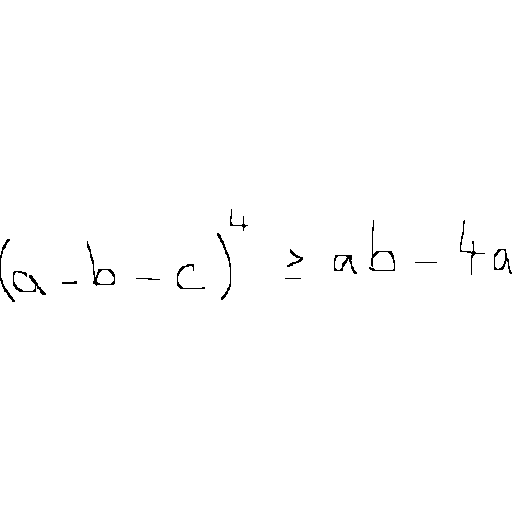 (a - b - c)⁴ ≥ ab - 4a